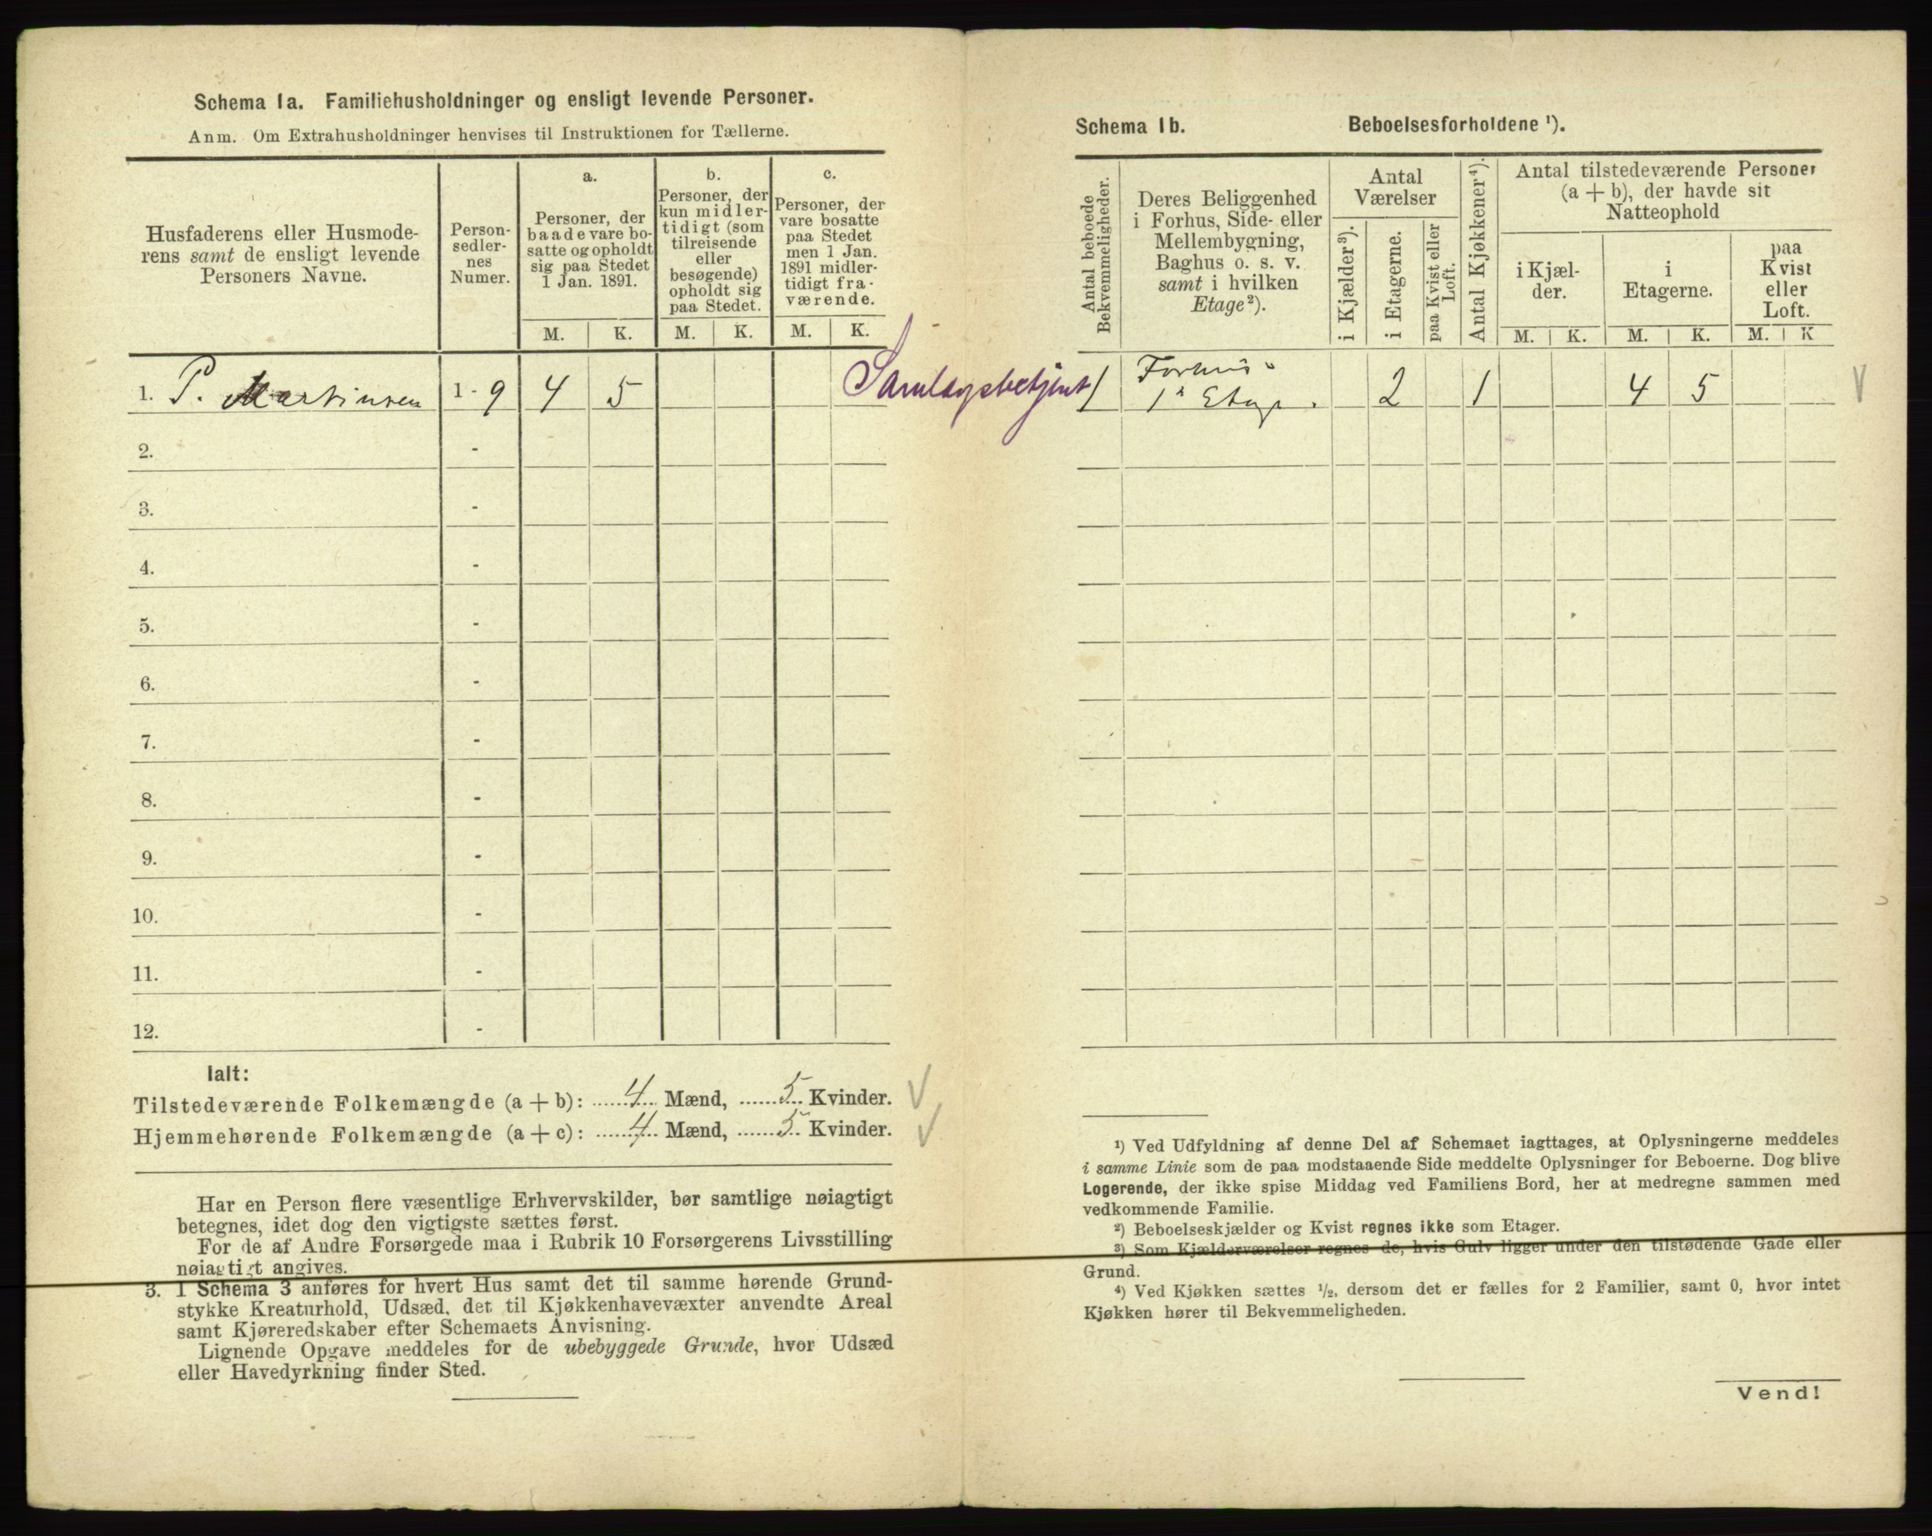 Schema 1a. Familiehusholdninger og ensligt levende Personer.
Anm. Om Extrahusholdninger henvises til Instruktionen for Tællerne.
Husfaderens eller Husmode-
rens samt de ensligt levende
Personers Navne.
Person-
sedler-
nes
Numer.
a.
Personer, der
baade vare bo-
satte og opholdt
sig paa Stedet
1 Jan. 1891.
b.
Personer, der
kun midler-
tidigt (som
tilreisende
eller
besøgende)
opholdt sig
paa Stedet.
c.
Personer, der
vare bosatte
paa Stedet
men 1 Jan.
1891 midler-
tidigt fra-
værende.
M. K. M. K. M. K.
1. P. Martinsen 1 - 9 4 5
Samlagsbetjent
2. -
3. -
4. -
5. -
6. -
7. -
8. -
9. -
10. -
11. -
12. -
Ialt:
Tilstedeværende Folkemængde (a + b): 4 Mænd, 5 Kvinder.
Hjemmehørende Folkemængde (a + c): 4 Mænd, 5 Kvinder.
Har en Person flere væsentlige Erhvervskilder, bør samtlige nøiagtigt
betegnes, idet dog den vigtigste sættes først.
For de af Andre Forsørgede maa i Rubrik 10 Forsørgerens Livsstilling
nøiagtigt angives.
3. I Schema 3 anføres for hvert Hus samt det til samme hørende Grund-
stykke Kreaturhold, Udsæd, det til Kjøkkenhavevæxter anvendte Areal
samt Kjøreredskaber efter Schemaets Anvisning.
Lignende Opgave meddeles for de ubebyggede Grunde, hvor Udsæd
eller Havedyrkning finder Sted.
Schema 1b. Beboelsesforholdene ¹).
Antal beboede
Bekvemmeligheder.
Deres Beliggenhed
i Forhus, Side- eller
Mellembygning,
Baghus o. s. v.
samt i hvilken
Etage²).
Antal
Værelser
i Kjælder³).
i Etagerne.
paa Kvist eller
Loft.
Antal Kjøkkener⁴).
Antal tilstedeværende Personer
(a + b), der havde sit
Natteophold
i Kjæl-
der.
i
Etagerne.
paa
Kvist
eller
Loft.
M. K. M. K. M. K
1 Forhus
1ª Etage. 2 1 4 5
¹) Ved Udfyldning af denne Del af Schemaet iagttages, at Oplysningerne meddeles
i samme Linie som de paa modstaaende Side meddelte Oplysninger for Beboerne. Dog blive
Logerende, der ikke spise Middag ved Familiens Bord, her at medregne sammen med
vedkommende Familie.
²) Beboelseskjælder og Kvist regnes ikke som Etager.
³) Som Kjælderværelser regnes de, hvis Gulv ligger under den tilstødende Gade eller
Grund.
⁴) Ved Kjøkken sættes ½, dersom det er fælles for 2 Familier, samt 0, hvor intet
Kjøkken hører til Bekvemmeligheden.
Vend!